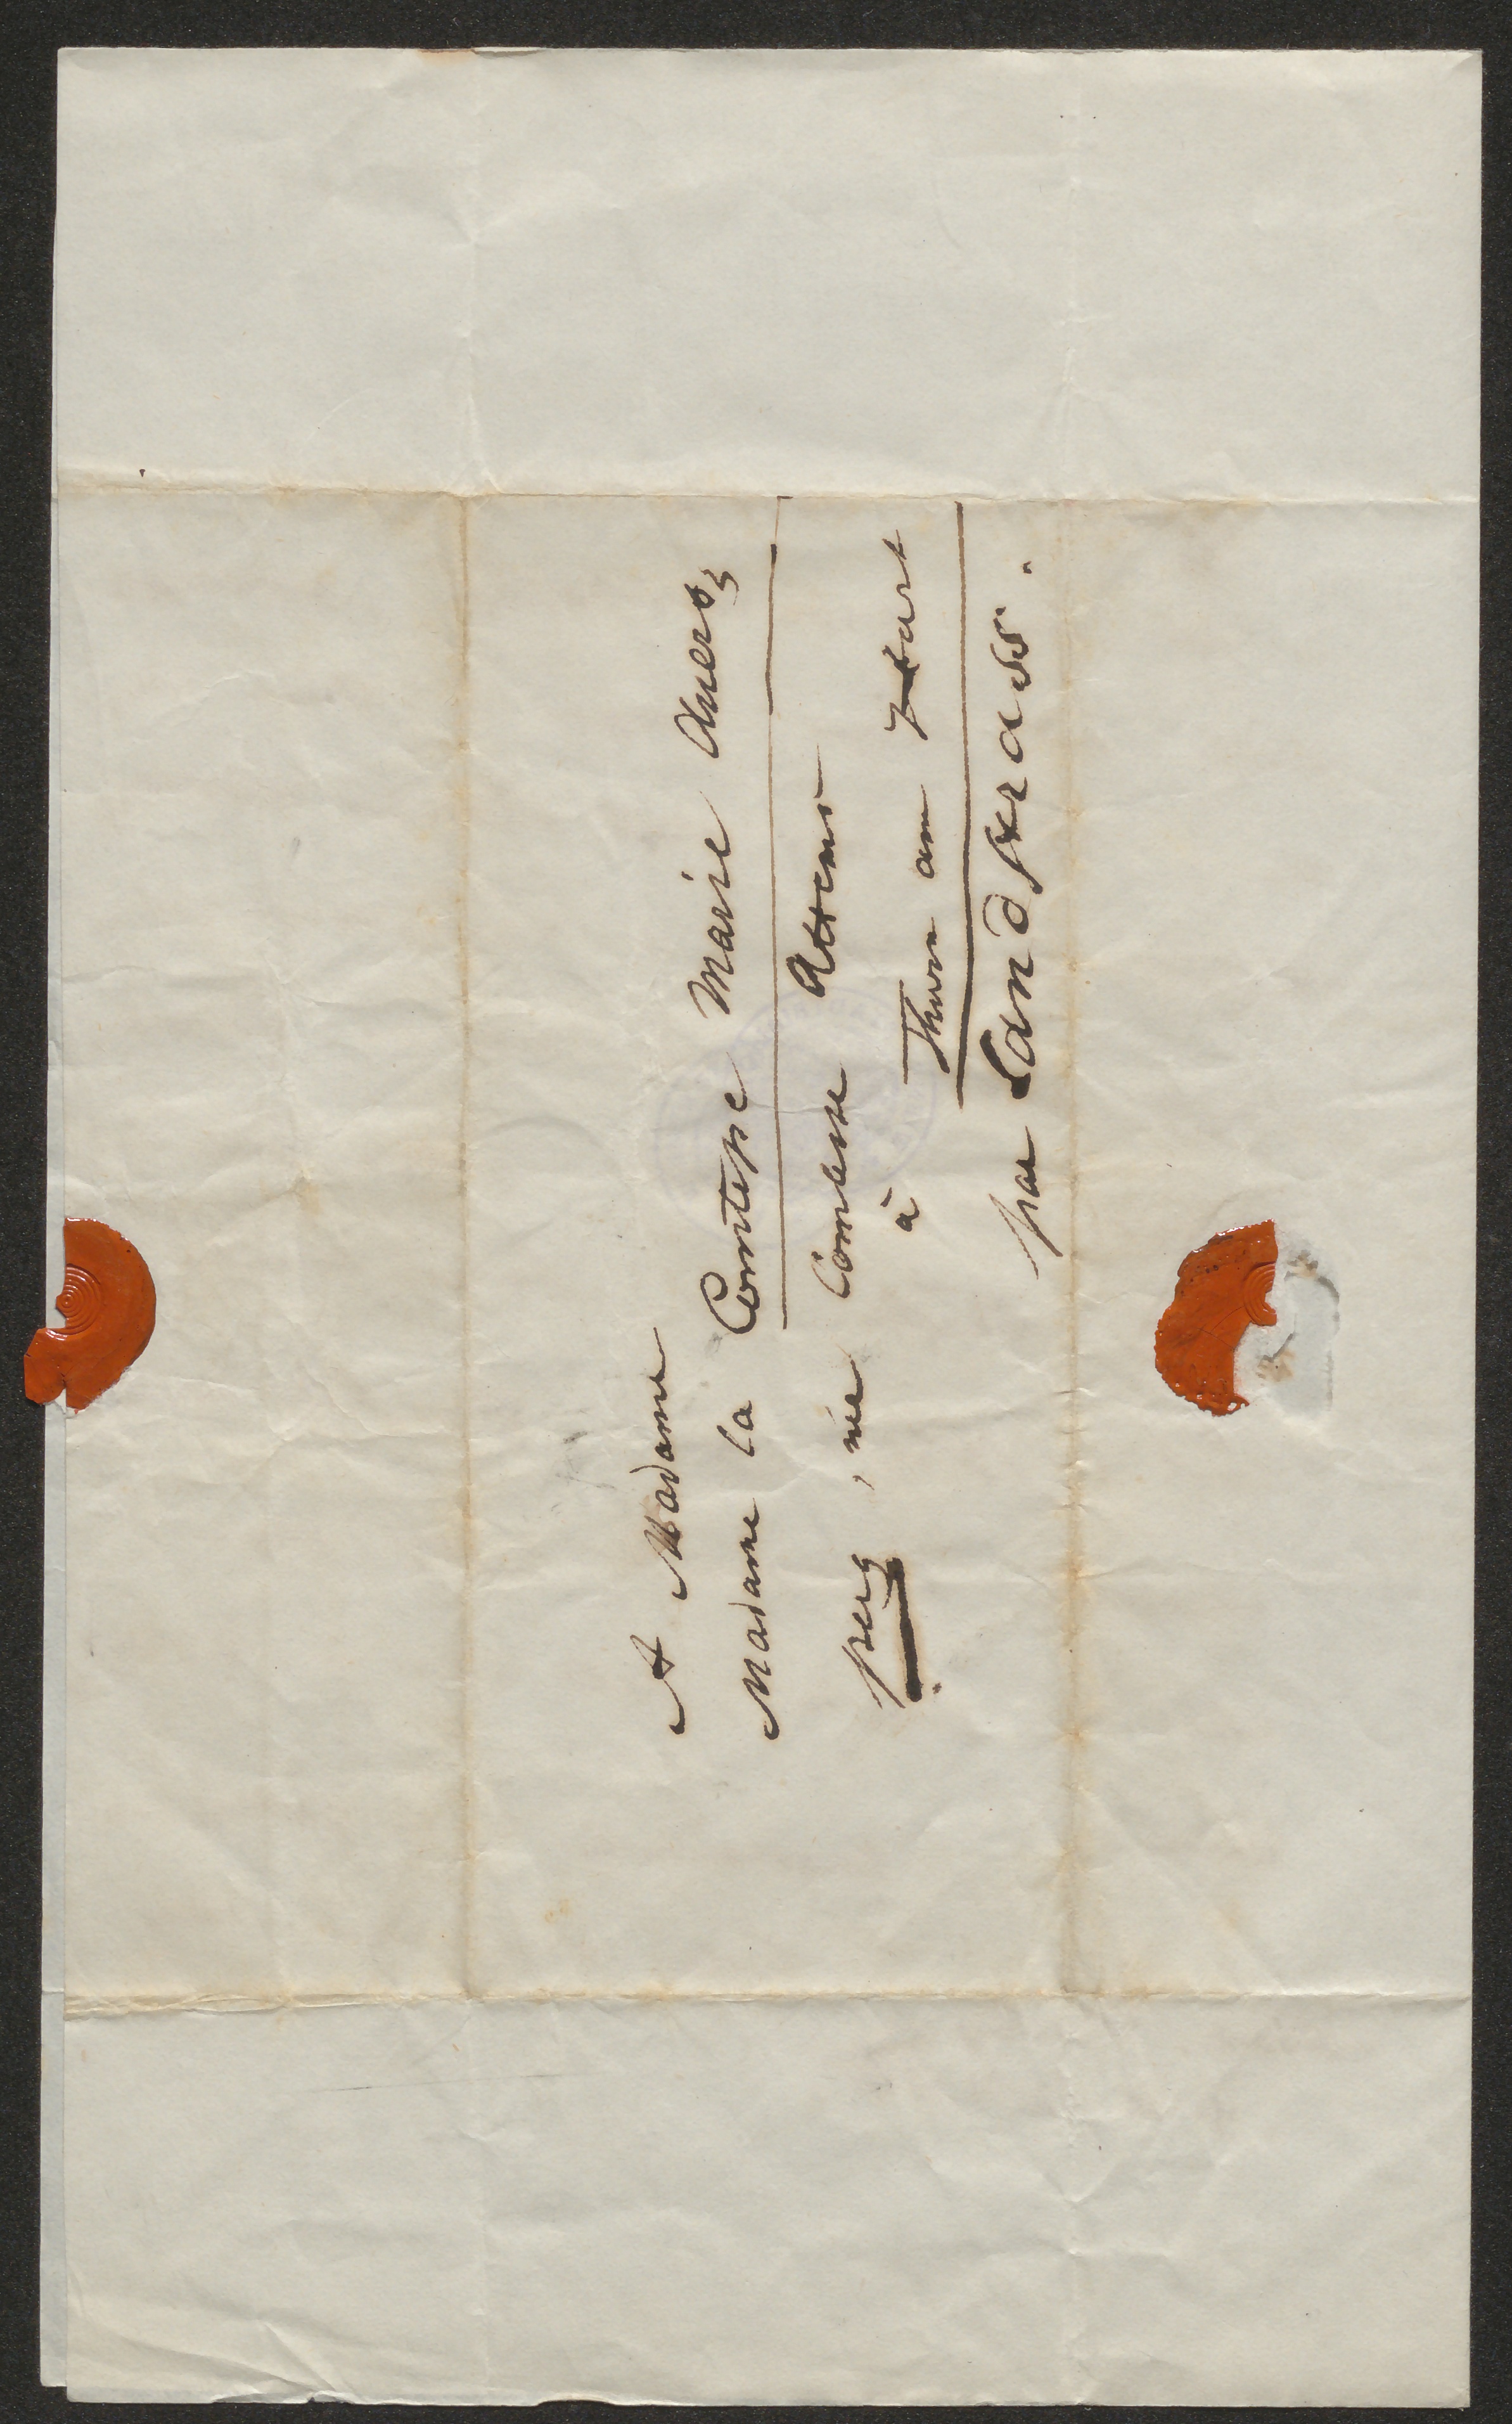 A Madame
Madame la Comtesse Marie Auers=
perg, née Comtesse Attems
à
Thurn am Hart
par Landstrass.